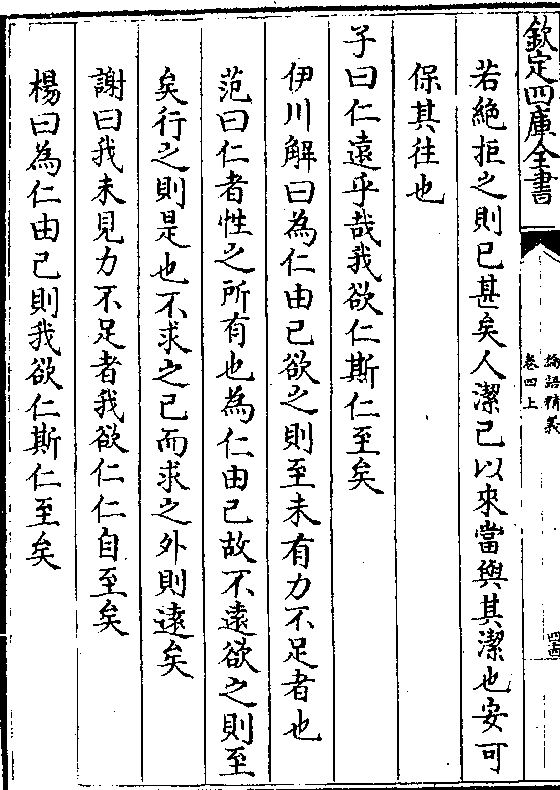 欽定四庫全書
論語精義
卷四上
若絶拒之則已甚矣人潔己以來當與其潔也安可
保其往也
子曰仁遠乎哉我欲仁斯仁至矣
伊川解曰為仁由己欲之則至未有力不足者也
范曰仁者性之所有也為仁由己故不遠欲之則至
矣行之則是也不求之己而求之外則遠矣
謝曰我未見力不足者我欲仁仁自至矣
楊曰為仁由己則我欲仁斯仁至矣